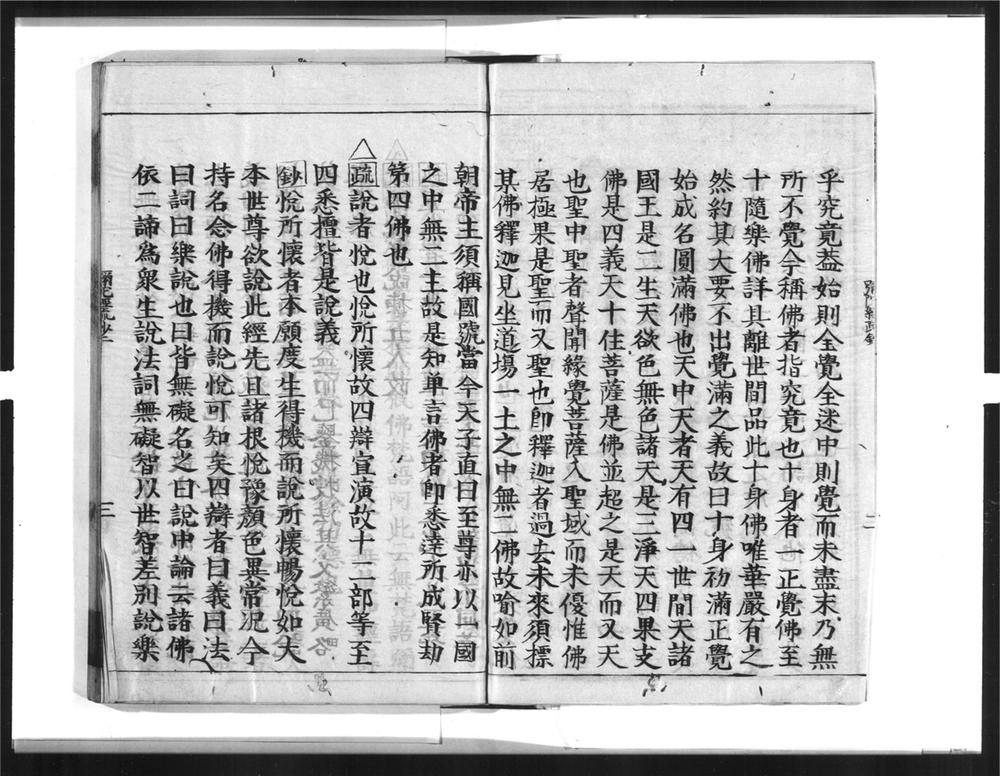 乎究竟葢始則全覺全迷中則覺而未盡末乃無
所不覺今稱佛者指究竟也十身者一正覺佛至
十隨樂佛詳具離世間品此十身佛唯華嚴有之
然約其大要不出覺滿之義故曰十身初滿正覺
始成名圓滿佛也天中天者天有四一世間天諸
國王是二生天欲色無色諸天是三淨天四果支
佛是四義天十住菩薩是佛並超之是天而又天
也聖中聖者聲聞緣覺菩薩入聖域而未優惟佛
居極果是聖而又聖也卽釋迦者過去未來須標
某佛釋迦見坐道場一土之中無二佛故喻如前
朝帝主須稱國號當今天子直曰至尊亦以一國
之中無二主故是知单言佛者卽悉達所成賢劫
第四佛也
疏說者悅也悅所懷故四辯宣演故十二部等至
四悉檀皆是說義
鈔悅所懷者本願度生得機而說所懷暢悅如大
本世尊欲說此經先且諸根悅豫顏色異常況今
持名念佛得機而說悅可知矣四辯者曰義曰法
曰詞曰樂說也曰皆無礙名之曰說中論云諸佛
依二諦爲衆生說法詞無礙智以世智差別說樂
三